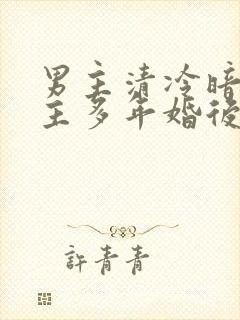 男主清冷暗
主多年婚後
許青青